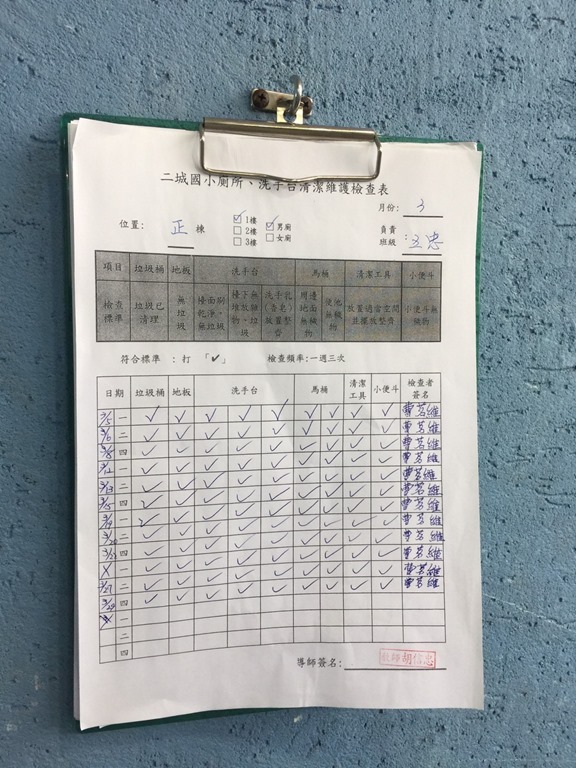 二城國小廁所、洗手台清潔維護檢查表
月份: 3
位置: 正 棟 ☑1樓 ☑男廁 負責
□2樓 □女廁 班級:五忠
□3樓
項目 垃圾桶 地板 洗手台 馬桶 清潔工具 小便斗
檢查標準 垃圾已清理 無垃圾 檯面刷乾淨、無垃圾 檯下無堆放雜物、垃圾 洗手乳(香皂)放置整齊 周邊地面無穢物 便池無穢物 放置適當空間並擺放整齊 小便斗無穢物
符合標準 :打 「✓」 檢查頻率:一週三次
日期 垃圾桶 地板 洗手台 馬桶 清潔工具 小便斗 檢查者簽名
3/5 一 ✓ ✓ ✓ ✓ ✓ ✓ ✓ ✓ ✓
3/6 二 ✓ ✓ ✓ ✓ ✓ ✓ ✓ ✓ ✓
3/8 四 ✓ ✓ ✓ ✓ ✓ ✓ ✓ ✓ ✓
3/12 一 ✓ ✓ ✓ ✓ ✓ ✓ ✓ ✓ ✓
3/13 二 ✓ ✓ ✓ ✓ ✓ ✓ ✓ ✓ ✓
3/15 四 ✓ ✓ ✓ ✓ ✓ ✓ ✓ ✓ ✓
3/19 一 ✓ ✓ ✓ ✓ ✓ ✓ ✓ ✓ ✓
3/20 二 ✓ ✓ ✓ ✓ ✓ ✓ ✓ ✓ ✓
3/22 四 ✓ ✓ ✓ ✓ ✓ ✓ ✓ ✓ ✓
一 ✓ ✓ ✓ ✓ ✓ ✓ ✓ ✓ ✓
3/27 二 ✓ ✓ ✓ ✓ ✓ ✓ ✓ ✓ ✓
3/29 四 ✓ ✓ ✓ ✓ ✓ ✓ ✓ ✓ ✓
一
二
四
導師簽名: 教師胡信忠